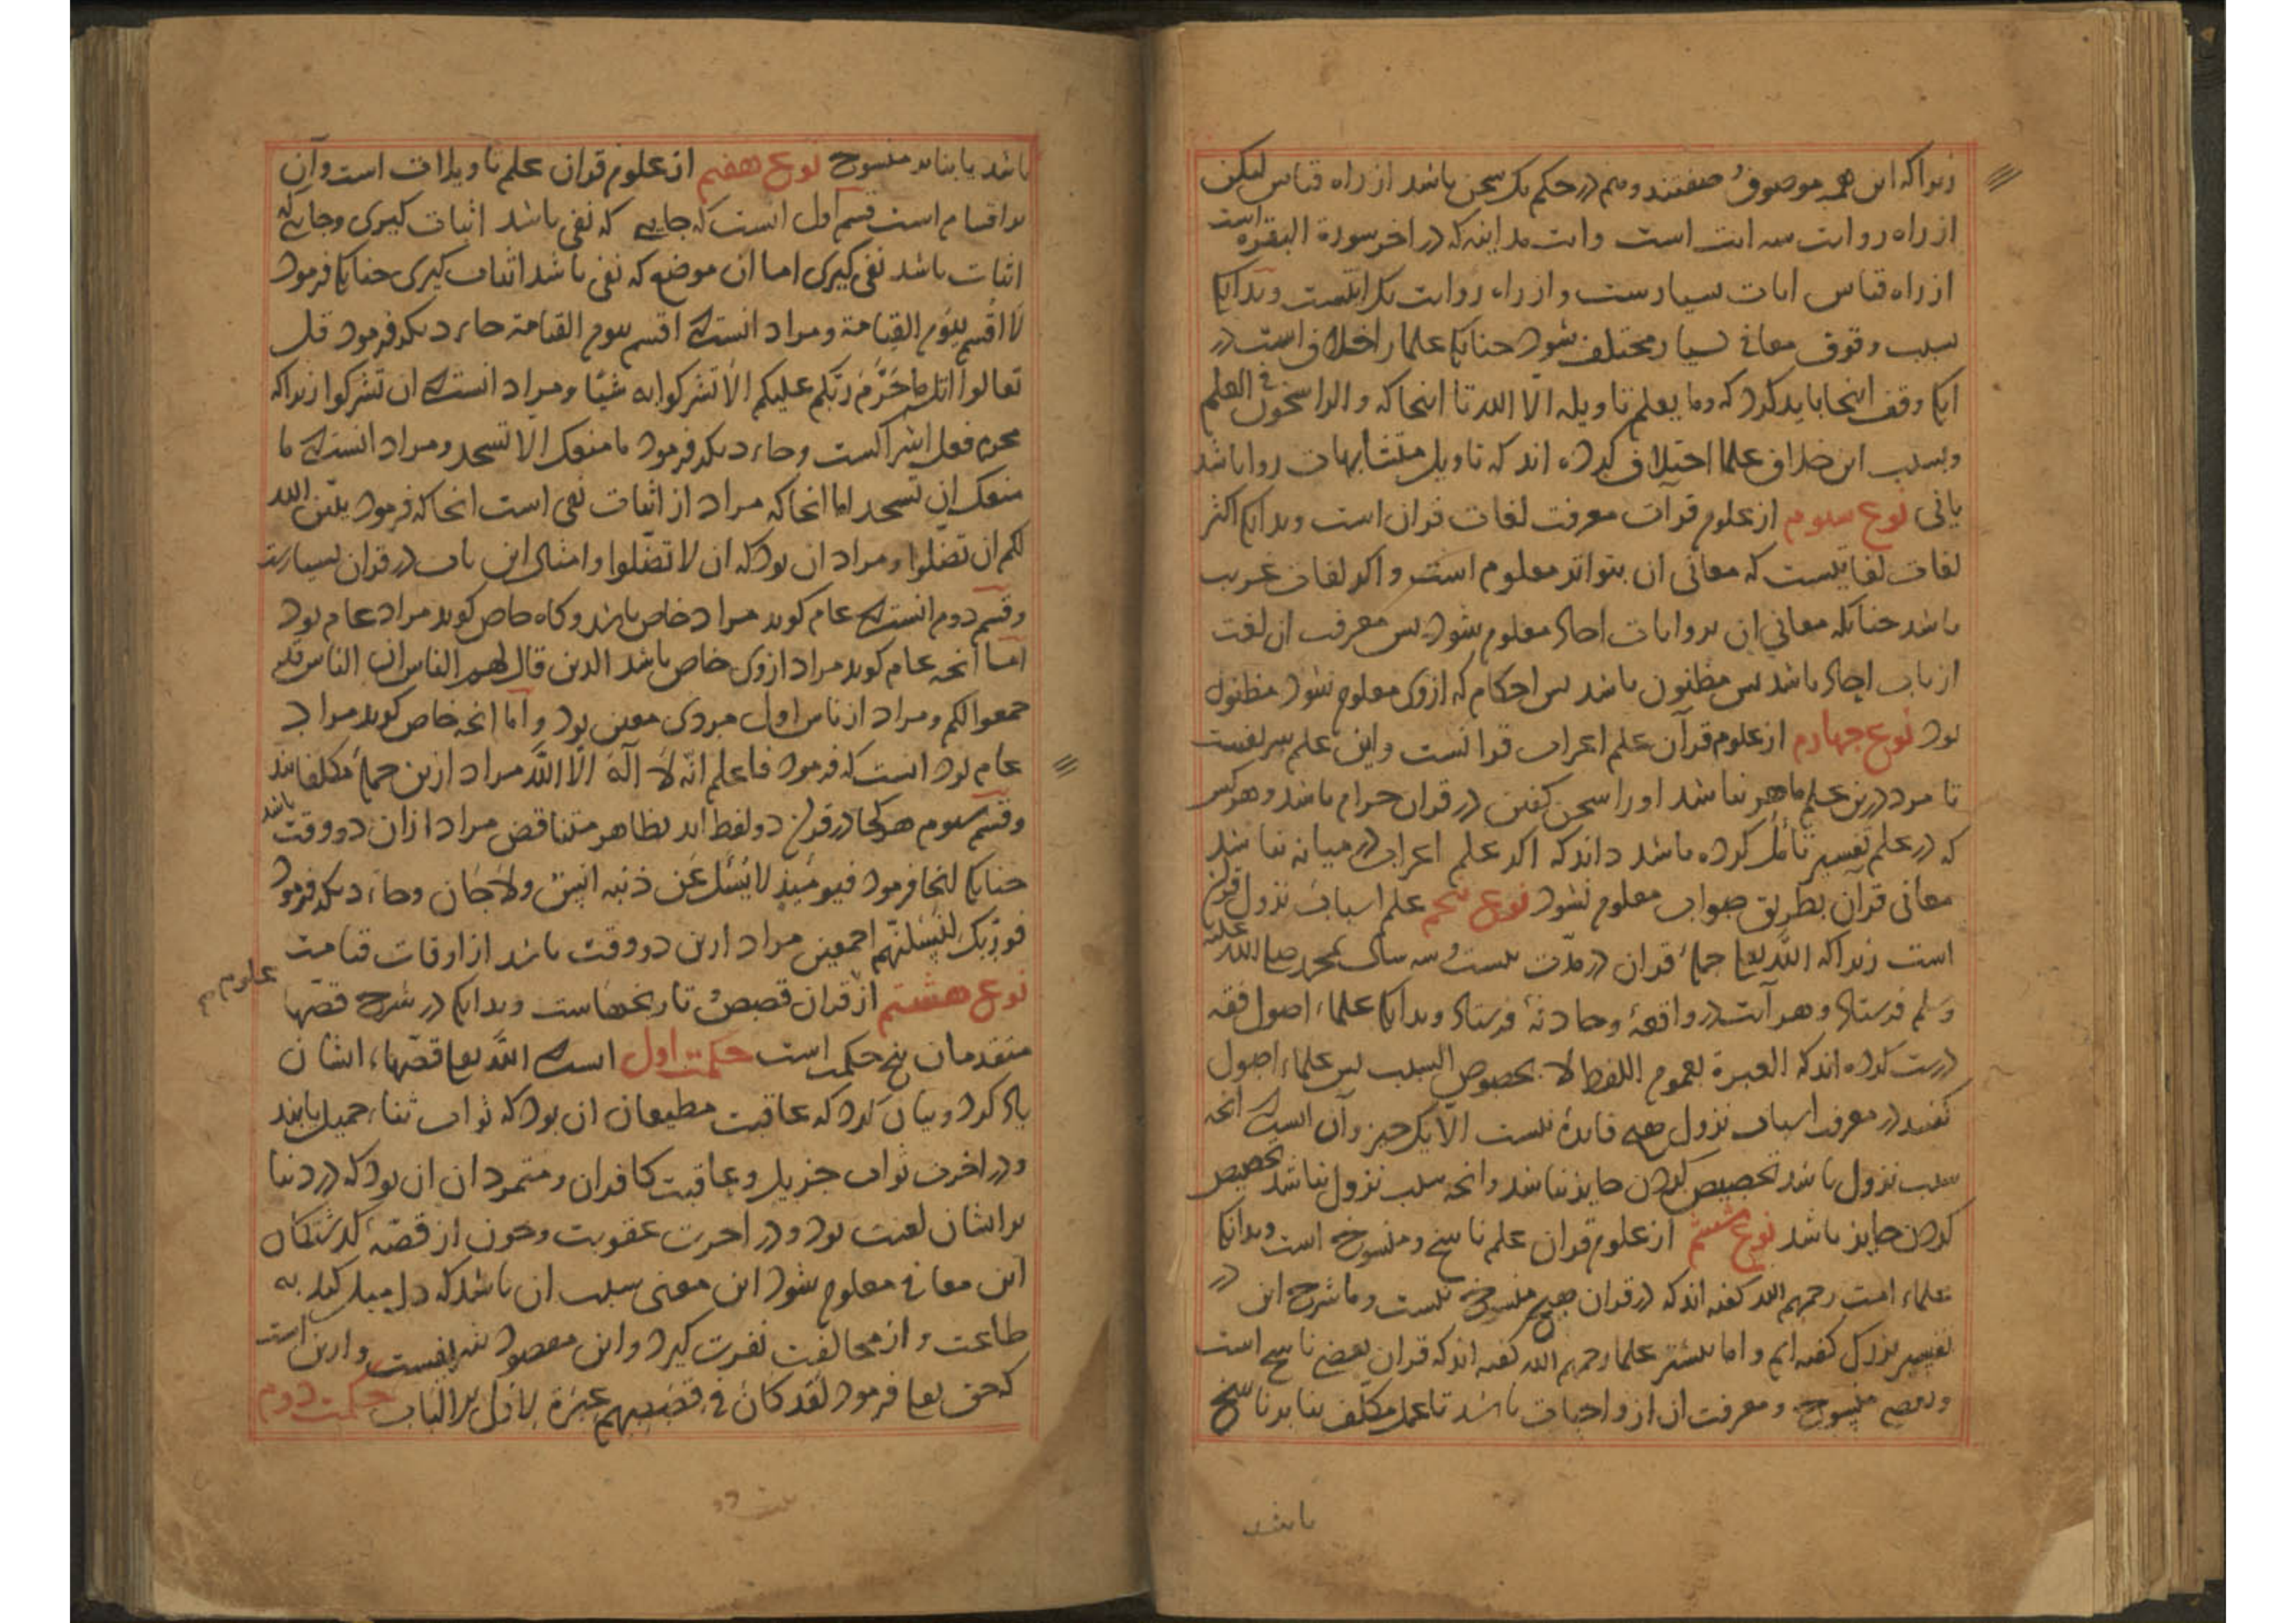 زیراکه این همه موصوف و صفتند و هم در حکم یک سخن باشد از راه قیاس لیکن
از راه روایت سه ایت است وایت مداینه که در اخر سورة البقره است
از راه قیاس ایات بسیارست و از راه روایت یک ایتست و بدانک
بسبب وقوف معانی بسیار مختلف شود چنانک علما را خلاف است در
انک وقف اینجا باید کرد که وما یعلم تاویله الا الله تا اینجا که والراسخون فی العلم
وبسبب این خلاف علما اختلاف کرده اند که تاویل متشابهات روا باشد
یا نی نوع سوم از علوم قرآن معرفت لغات قران است وبدانک اکثر
لغات لغاتیست که معانی ان بتواتر معلوم است و اکر لغات غریب
باشد چنانکه معانی ان بروایات احاد معلوم شود پس معرفت ان لغت
از باب احاد باشد پس مظنون باشد پس احکام که ازوی معلوم شود مظنون
بود نوع چهارم از علوم قرآن علم اعراب قرانست واین علم شریفست
تا مرد درین علم ماهر نباشد اورا سخن کفتن در قران حرام باشد وهرکس
که در علم تفسیر تأمل کرده باشد داند که اکر علم اعراب در میانه نباشد
معانی قرآن بطریق صواب معلوم نشود نوع پنجم علم اسباب نزول قران
است زیراکه الله تعا جملۀ قران در مدّت بیست و سه سال بمحمد صلی الله علیه
وسلم فرستاد و هر آیت در واقعۀ وحادثۀ فرستاد وبدانک علماء اصول فقه
درست کرده اند که العبرة بعموم اللفظ لا بخصوص السبب پس علماء اصول
کفتند در معرفت اسباب نزول هیچ فایدۀ نیست الّا یک چیز وآن انست که انچه
سبب نزول باشد تخصیص کردن جایز نباشد وانچه سبب نزول نباشد تخصیص
کردن جایز باشد نوع ششم از علوم قران علم ناسخ و منسوخ است وبدانک
علماء امت رحمهم الله کفته اند که در قران هیچ منسوخ نیست وما شرح این در
تفسیر بزرک کفته ایم و اما بیشتر علما رحمهم الله کفته اند که قران بعضی ناسخ است
وبعضی منسوخ ومعرفت ان از واجبات باشد تا عمل مکلّف بنا بر ناسخ
باشد
باشد یا بنا بر منسوخ نوع هفتم از علوم قران علم تاویلات است وآن
بر اقسام است قسم اول انست که جایی که نفی باشد اثبات کیری وجایی که
اثبات باشد نفی کیری اما ان موضع که نفی باشد اثبات کیری چنانکا فرمود
لا اقسم بیَوم القیامة ومراد انست که اقسم بیوم القیامة جاء دیکر فرمود قل
تعالوا اتل ما حَرَّم رَبّکم علیکم الّا تشرکوا به شیًا ومراد انست که ان تشرکوا زیراکه
محرم فعل اشراکست وجاء دیکر فرمود ما منعک الا تسجد ومراد انست که ما
منعک ان تسجد اما انجا که مراد از اثبات نفی است انجا که فرمود یبیّن الله
لکم ان تضلوا ومراد ان بود که ان لا تضّلوا وامثال این باب در قران بسیارست
وقسم دوم انست که عام کوید مراد خاص باشد وکاه خاص کوید مراد عام بود
امّا انچه عام کوید مراد ازوی خاص باشد الذین قال لهم الناس ان الناس قد
جمعوا لکم ومراد از ناس اول مردی معین بود و آما انچه خاص کوید مراد
عام بود انست که فرمود فاعلم انّه لا آله الّا اللّه مراد ازین جملۀ مکلفانند
وقسم سوم هرکجا در قران دو لفظ اید بظاهر متناقض مراد ازان دو وقت باشد
چنانک اینجا فرمود فیومئیذٍ لا یُسئل عَن ذنبه انسٌ ولا جَان وجاء دیکر فرمود
فوربّک لنَسئلنّهم اجمعین مراد ازین دو وقت باشد از اوقات قیامت
نوع هشتم از علوم قران قصص و تاریخهاست وبدانک در شرح قصّها
متقدمان پنج حکمت است حکمت اول انست که اللّه تعا قصّها، ایشان
یاد کرد وبیان کرد که عاقبت مطیعان ان بود که ثواب ثناء جمیل یابند
ودر اخرت ثواب جزیل وعاقبت کافران و متمردان ان بود که در دنیا
بر ایشان لعنت بود ودر اخرت عقوبت وچون از قصّۀ کذشتکان
این معانی معلوم شود این معنی سبب ان باشد که دل میل کند به
طاعت و از مخالفت نفرت کیرد واین مقصود شریفست و ازین است
که حق تعا فرمود لَقَد کانَ فی قصَصِهم عِبَرة لاولی الالباب حکمت دوم